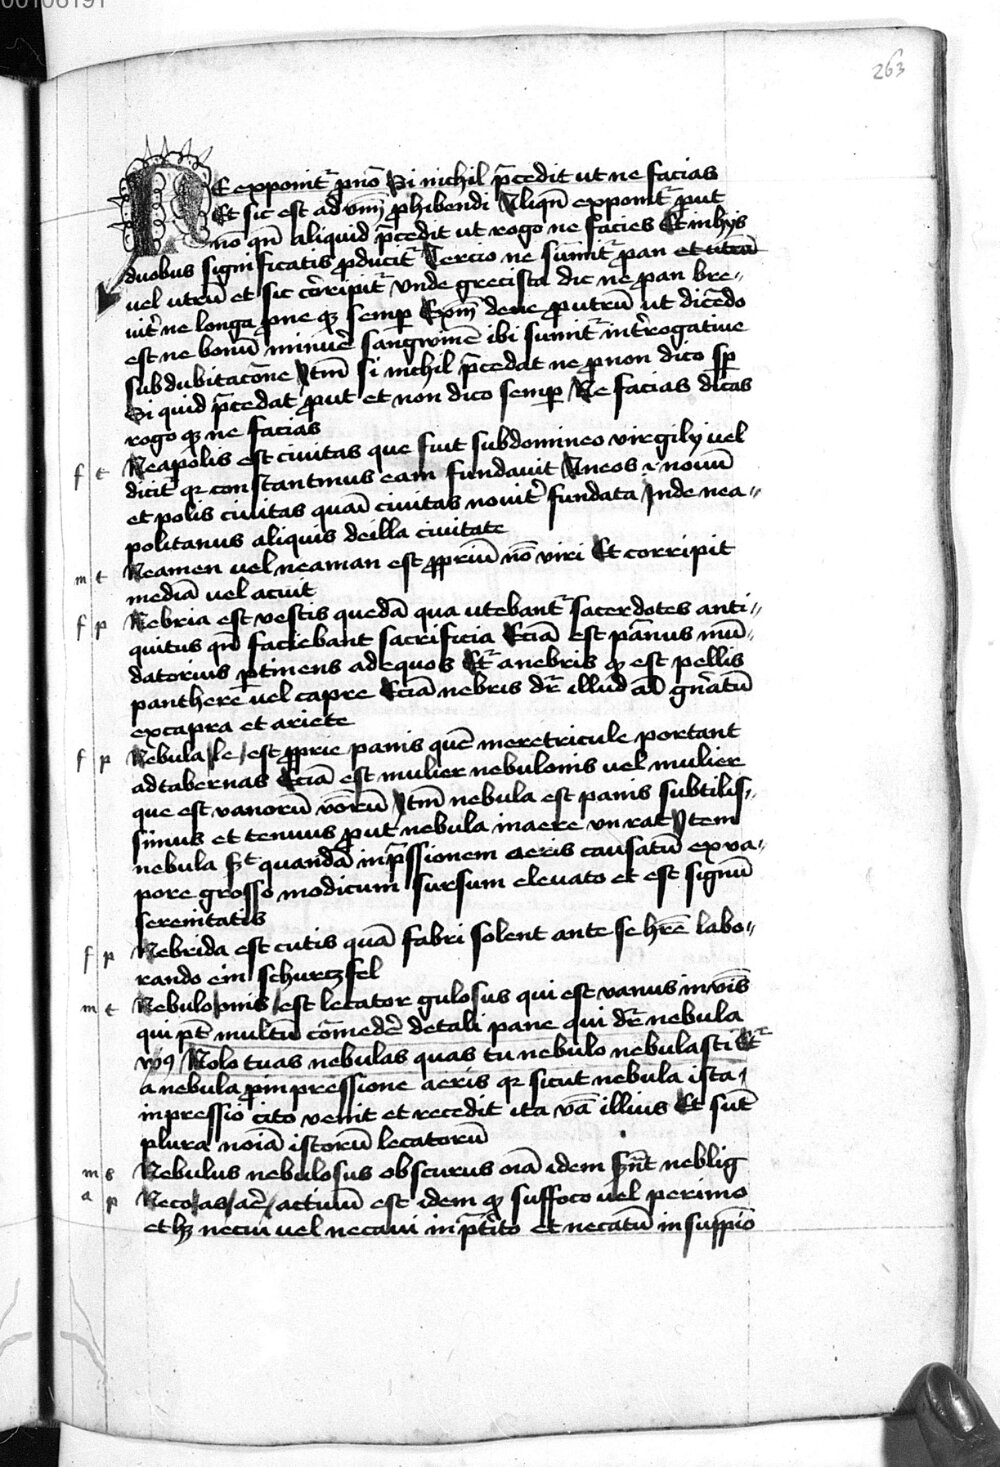 00106191
263
NE exponit̄ p̄mo Si nichil p̄cedit ut ne facias
Et sic est aduerbiū ꝓhibendi Aliqn̄ exponit̄ put
nō qn̄ aliquid p̄cedit ut rogo ne facies Et in hys
duobus significatis ꝓducit̄ Tercio ne sumit̄ pro an et utrū
vel utrū et sic corripit̄ vnde grecista dic ne pro an bre-
uit̄ ne longa pro ne qꝫ semp Exm̄ de ne pro utrū ut dicēdo
est ne bonū minuē sangwinē ibi sumit̄ int̄rogatiue
sub dubitacōne Itm̄ si nichil p̄cedat ne pro non dico sp̄
Si quid p̄cedat put et non dico semp Ne facias dicas
rogo qꝫ ne facias
f t Neapolis est ciuitas que fuit sub domineo virgily vel
dicit̄ qꝛ constantinus eam fundauit A neos i nouū
et polis ciuitas quasi ciuitas nouit̄ fundata Inde nea-
politanus aliquis de illa ciuitate
m t Neamen vel neaman est ꝓpriū nō viri Et corripit
mediā vel acuit
f p Nebria est vestis quedā qua utebant̄ sacerdotes anti-
quitus qn̄ faciebant sacrificia Eciā est pānus mū-
datorius ptinens ad equos Et a nebris qꝫ est pellis
pantherē vel capre Eciā nebris dr̄ illud aīal gn̄atū
ex capra et ariete
f p Nebula le est ꝓprie panis quē meretricule portant
ad tabernas Eciā est mulier nebulonis vel mulier
que est vanorū v̄borū Itm̄ nebula est panis subtilis-
simus et tenuus put nebula in aere Item
nebula sꝫt quandā inp̄ssionem aeris causatū ex va-
pore grosso modicum sursum eleuato et est signū
serenitatis
f p Nebrida est cutis quā fabri solent ante se hr̄e labo-
rando ein schurczfel
m t Nebulo onis est lecator gulosus qui est vanus in v̄bis
qui pt̄ multū cōmedē de tali pane qui dr̄ nebula
Nolo tuas nebulas quas tu nebulo nebulasti Et
a nebula pro inpressione aeris qꝛ sicut nebula ista
inpressio cito venit et recedit ita v̄ba illius Et sūt
plura noīa istorū lecatorū
m s Nebulus nebulosus obscurus oīa idem sn̄t neblig
a p Neco as aē actiuū est idem qꝫ suffoco vel perimo
et hꝫ necui vel necaui in p̄tito et necatū in suppīo